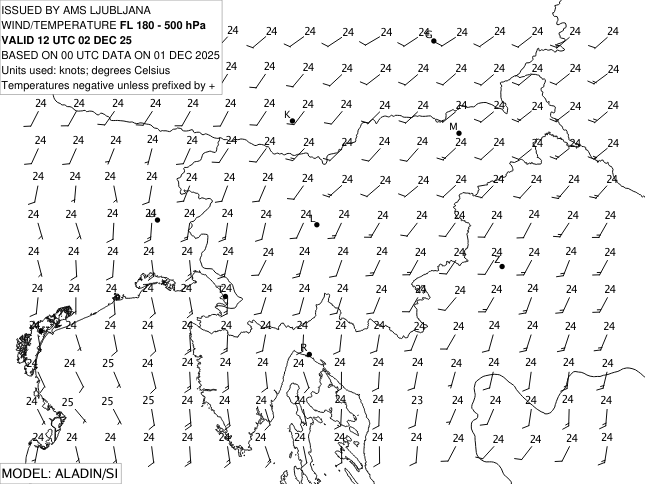 ISSUED BY AMS LJUBLJANA
WIND/TEMPERATURE FL 180 - 500 hPa
VALID 12 UTC 02 DEC 25
BASED ON 00 UTC DATA ON 01 DEC 2025
Units used: knots; degrees Celsius
Temperatures negative unless prefixed by +
24 24 24 24 24 24 G 24 24 24 24 24
24 24 24 24 24 24 24 24 24 24 24
24 24 24 24 24 24 24 24 24 24 24 24 24 24 24 24
K
M
24 24 24 24 24 24 24 24 24 24 24 24 24 24 24 24
24 24 24 24 24 24 24 24 24 24 24 24 24 24 24 24
24 24 24 24 24 24 24 L 24 24 24 24 24 24 24 24 24
24 24 24 24 24 24 24 24 24 24 24 24 24 24 24 24
Z
24 24 24 24 24 24 24 24 24 24 24 24 24 24 24 24
24 24 24 24 24 24 24 24 24 24 24 24 24 24 24 24
R
24 24 25 24 24 24 24 24 24 24 24 24 24 24 24 24
24 25 25 24 24 24 24 24 24 24 23 24 24 24 24 24
24 24 24 24 24 24 24 24 24 24 24 24 24 24 24 24
MODEL: ALADIN/SI